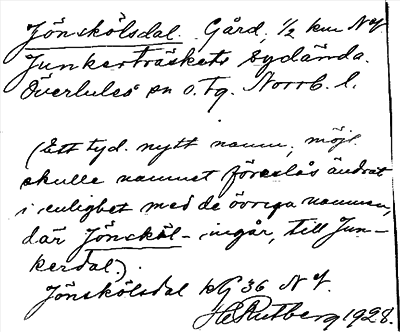 Jönskölsdal. Gård, ½ km N of
Junkerträskets sydända.
Överluleå sn o. tg. Norrb. l.
(Ett tyd. nytt namn, möjl.
skulle namnet föreslås ändrat
i enlighet med de övriga namnen,
där Jönsköl- ingår, till Jun-
kerdal).
Jönskölsdal kG 36 N of.
HGRutberg 1928.